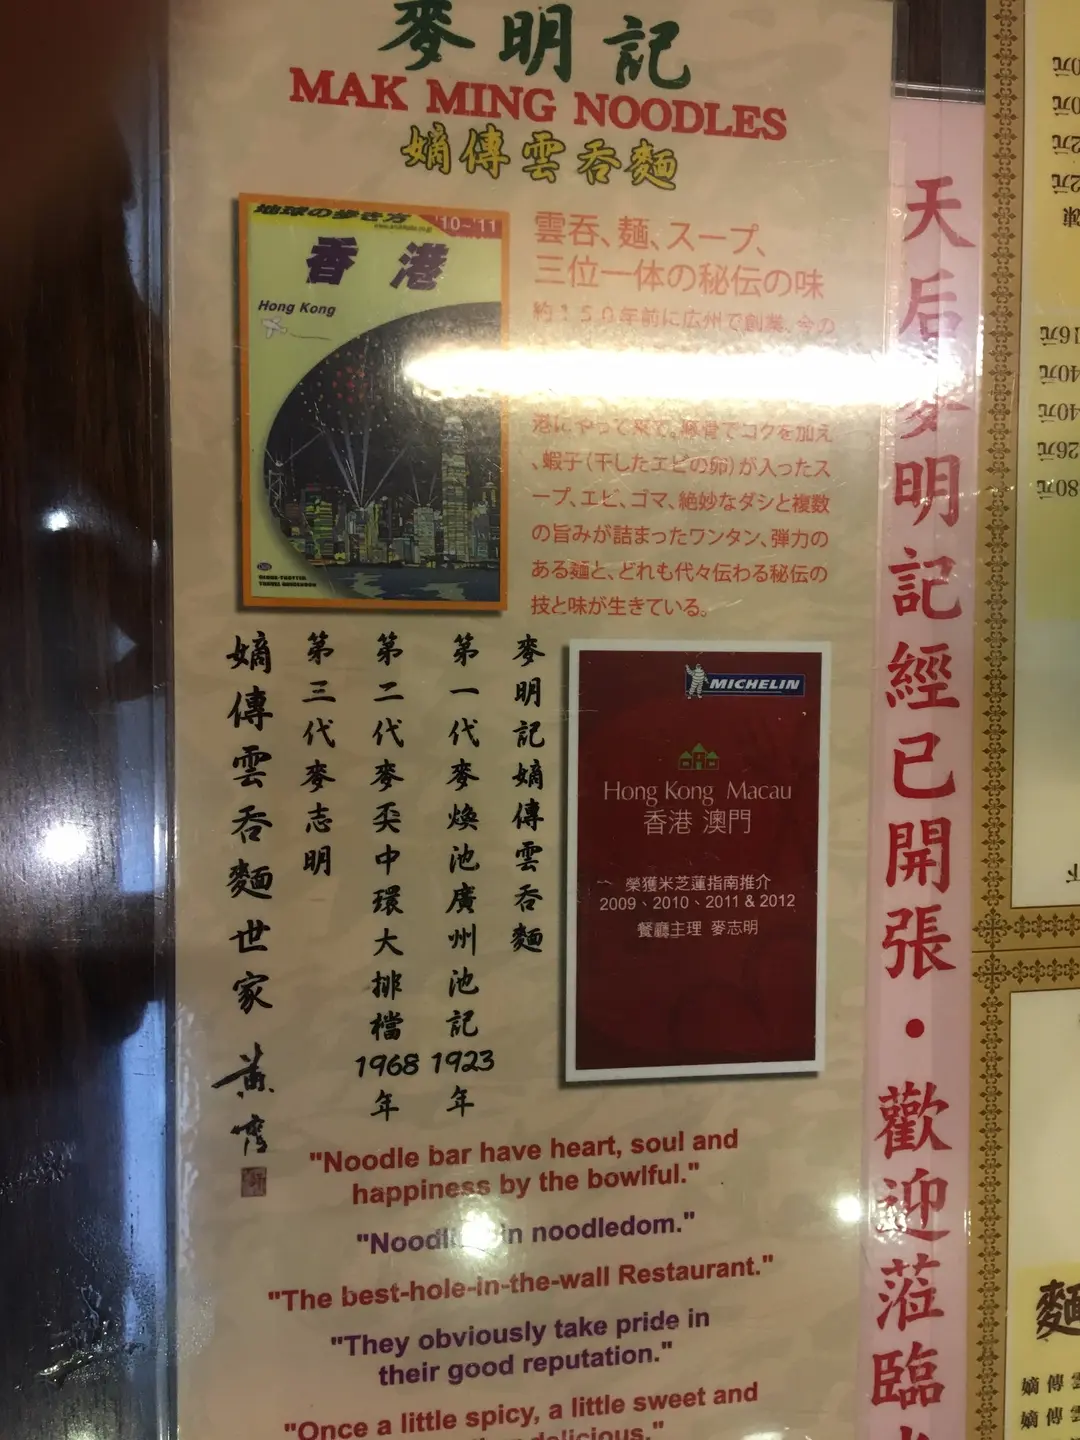 麥明記
MAK MING NOODLES
嫡傳雲吞麵
地球の歩き方
'10~'11
香港
Hong Kong
GLOBE-TROTTER
TRAVEL GUIDEBOOK
雲吞、麺、スープ、
三位一体の秘伝の味
約150年前に広州で創業、今の
港にやって来て。豚骨でコクを加え
、蝦子(干したエビの卵)が入ったス
ープ、エビ、ゴマ、絶妙なダシと複数
の旨みが詰まったワンタン、弾力の
ある麺と、どれも代々伝わる秘伝の
技と味が生きている。
麥明記嫡傳雲吞麵
第一代麥煥池廣州池記1923年
第二代麥奀中環大排檔1968年
第三代麥志明
嫡傳雲吞麵世家
MICHELIN
Hong Kong Macau
香港 澳門
榮獲米芝蓮指南推介
2009、2010、2011 & 2012
餐廳主理 麥志明
"Noodle bar have heart, soul and
happiness by the bowlful."
in noodledom."
"The best-hole-in-the-wall Restaurant."
"They obviously take pride in
their good reputation."
"Once a little spicy, a little sweet and
delicious."
天后麥明記經已開張·歡迎蒞臨
16元
40元
40元
26元
80元
麵
嫡傳雲
嫡傳雲